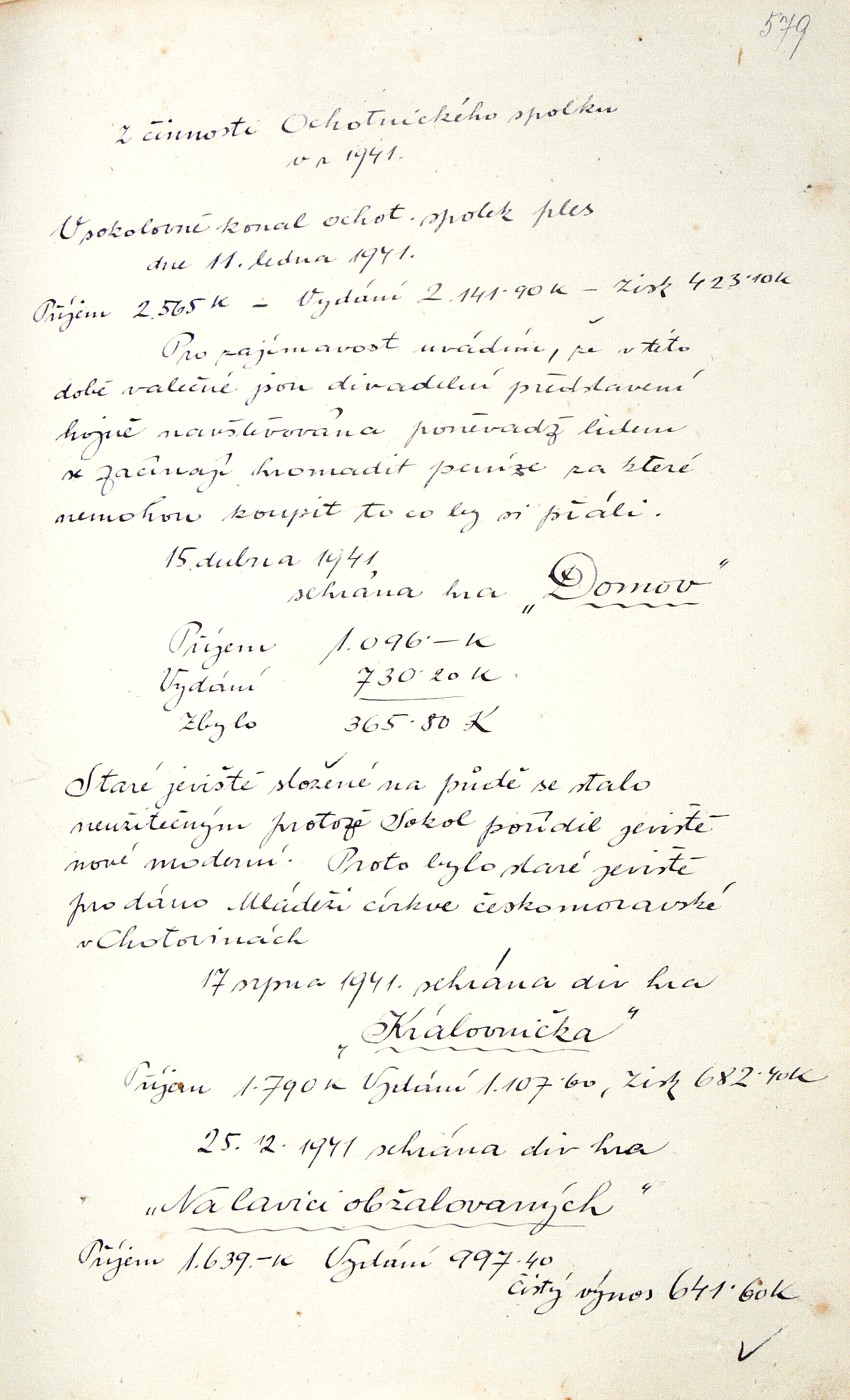 579
Z činnosti Ochotnického spolku
v r 1941.
V sokolovně konal ochot. spolek ples
dne 11. ledna 1941.
Příjem 2.565 K – Vydání 2.141·90 K – Zisk 423·10 K
Pro zajímavost uvádím, že v této
době válečné jsou divadelní představení
hojně navštěvována poněvadž lidem
se začínají hromadit peníze za které
nemohou koupit to co by si přáli.
15. dubna 1941
sehrána hra „Domov"
Příjem 1.096·– K
Vydání 730·20 K
Zbylo 365·80 K
Staré jeviště složené na půdě se stalo
neužitečným protože Sokol pořídil jeviště
nové moderní. Proto bylo staré jeviště
prodáno Mládeži církve českomoravské
v Chotovinách
17 srpna 1941. sehrána div hra
„Královnička"
Příjem 1.790 K Vydání 1.107·60, Zisk 682·40 K
25. 12. 1941 sehrána div hra
„Na lavici obžalovaných"
Příjem 1.639.– K Vydání 997·40
čistý výnos 641·60 K